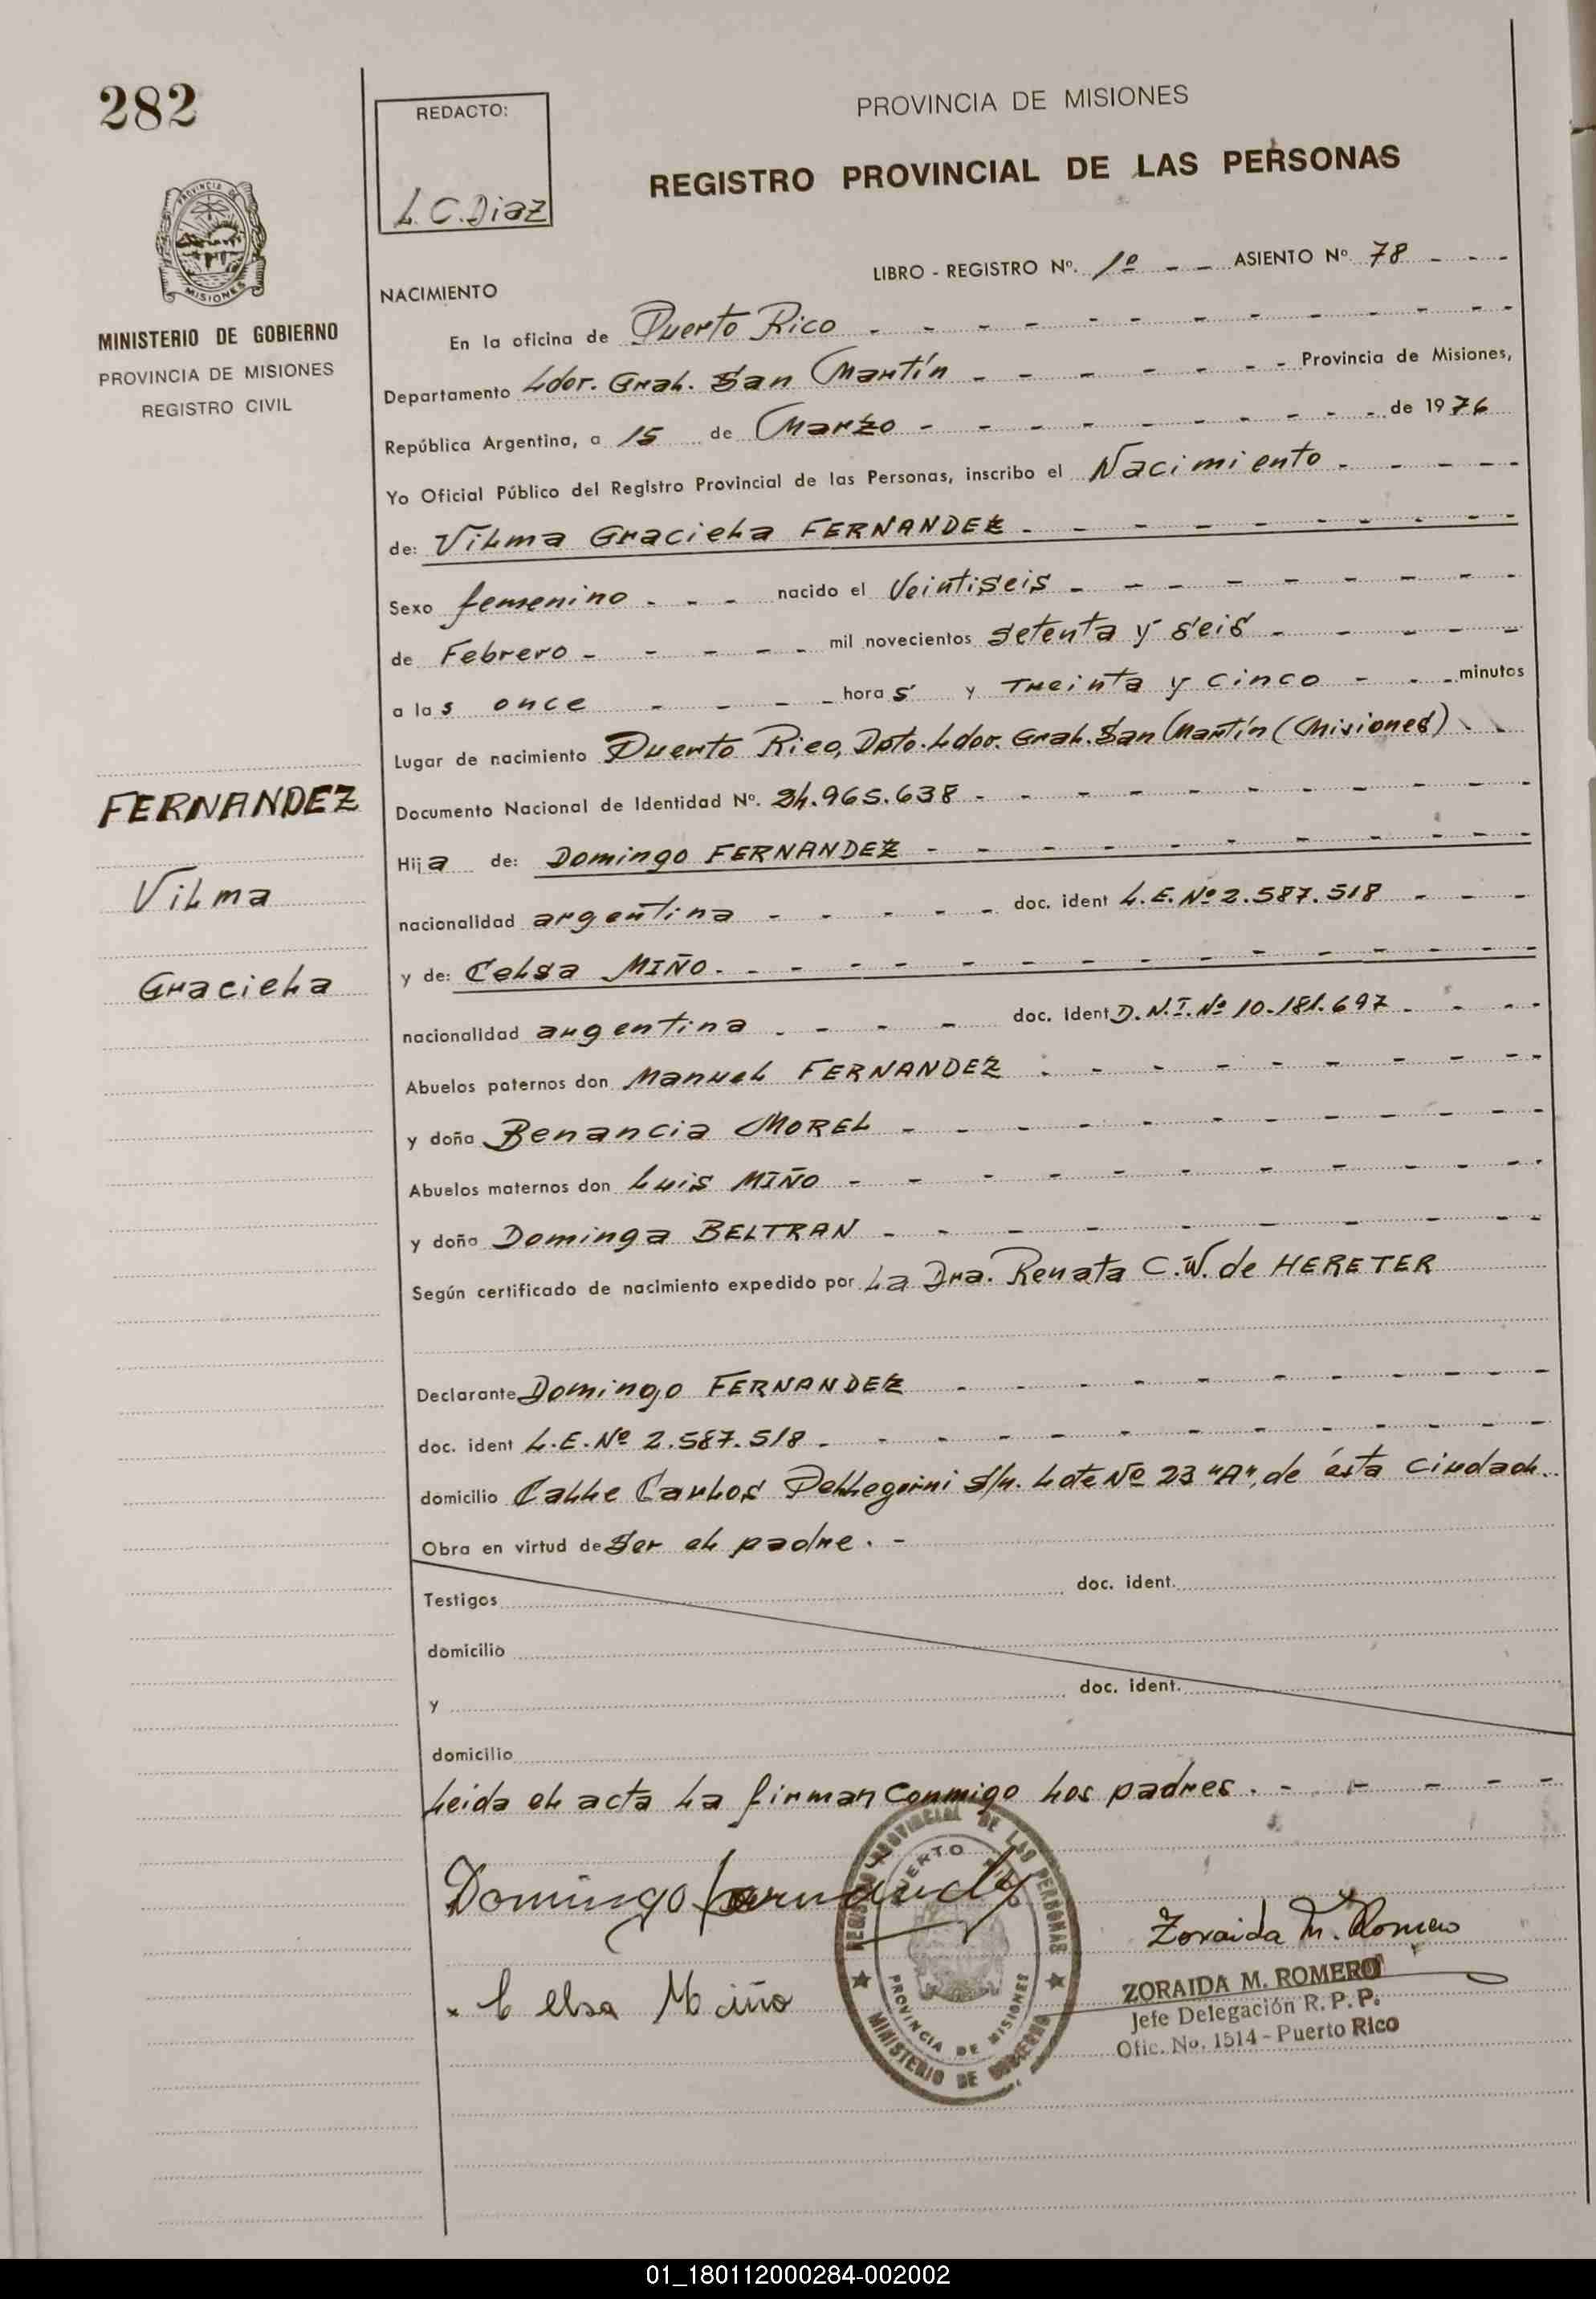 282
REDACTO:
L.C.Diaz
PROVINCIA DE MISIONES
REGISTRO PROVINCIAL DE LAS PERSONAS
PROVINCIA DE MISIONES
MINISTERIO DE GOBIERNO
PROVINCIA DE MISIONES
REGISTRO CIVIL
LIBRO - REGISTRO Nº. 1º - - ASIENTO Nº 78 - - -
NACIMIENTO
En la oficina de Puerto Rico - - - - - - - - - - - -
Departamento Ldor. Gral. San Martín - - - - - - - Provincia de Misiones,
República Argentina, a 15 de Marzo - - - - - - - - - de 1976
Yo Oficial Público del Registro Provincial de las Personas, inscribo el Nacimiento - - - - -
de: Vilma Graciela FERNANDEZ - - - - - - - - -
Sexo femenino - - - nacido el Veintiseis - - - - - - - -
de Febrero - - - - - mil novecientos setenta y seis - - - - -
a las once - - - - horas y Treinta y cinco - - - minutos
Lugar de nacimiento Puerto Rico, Dpto. Ldor. Gral. San Martín (Misiones)
Documento Nacional de Identidad Nº. 24.965.638 - - - - - - - - - -
FERNANDEZ
Vilma
Graciela
Hija de: Domingo FERNANDEZ - - - - - - - - - -
nacionalidad argentina - - - - - doc. ident L.E.Nº 2.587.518 - - -
y de: Celsa MIÑO. - - - - - - - - - - - - -
nacionalidad argentina - - - - doc. Ident D.N.I.Nº 10.181.697 - - - -
Abuelos paternos don Manuel FERNANDEZ - - - - - - - - -
y doña Benancia MOREL - - - - - - - - - -
Abuelos maternos don Luis MIÑO - - - - - - - - - -
y doña Dominga BELTRAN - - - - - - - - - -
Según certificado de nacimiento expedido por La Dra. Renata C.W. de HERETER
Declarante Domingo FERNANDEZ - - - - - - - - - -
doc. ident L.E.Nº 2.587.518 - - - - - - - - - - - -
domicilio Calle Carlos Pellegrini s/n. Lote Nº 23 "A", de ésta ciudad.-
Obra en virtud de ser el padre. -
Testigos doc. ident.
domicilio
y doc. ident.
domicilio
Leida el acta la firman conmigo los padres. - - - - -
Domingo Fernandez
Celsa Miño
REGISTRO PROVINCIAL DE LAS PERSONAS
PUERTO RICO
PROVINCIA DE MISIONES
MINISTERIO DE GOBIERNO
Zoraida M. Romero
ZORAIDA M. ROMERO
Jefe Delegación R. P. P.
Ofic. No. 1514 - Puerto Rico
01_180112000284-002002